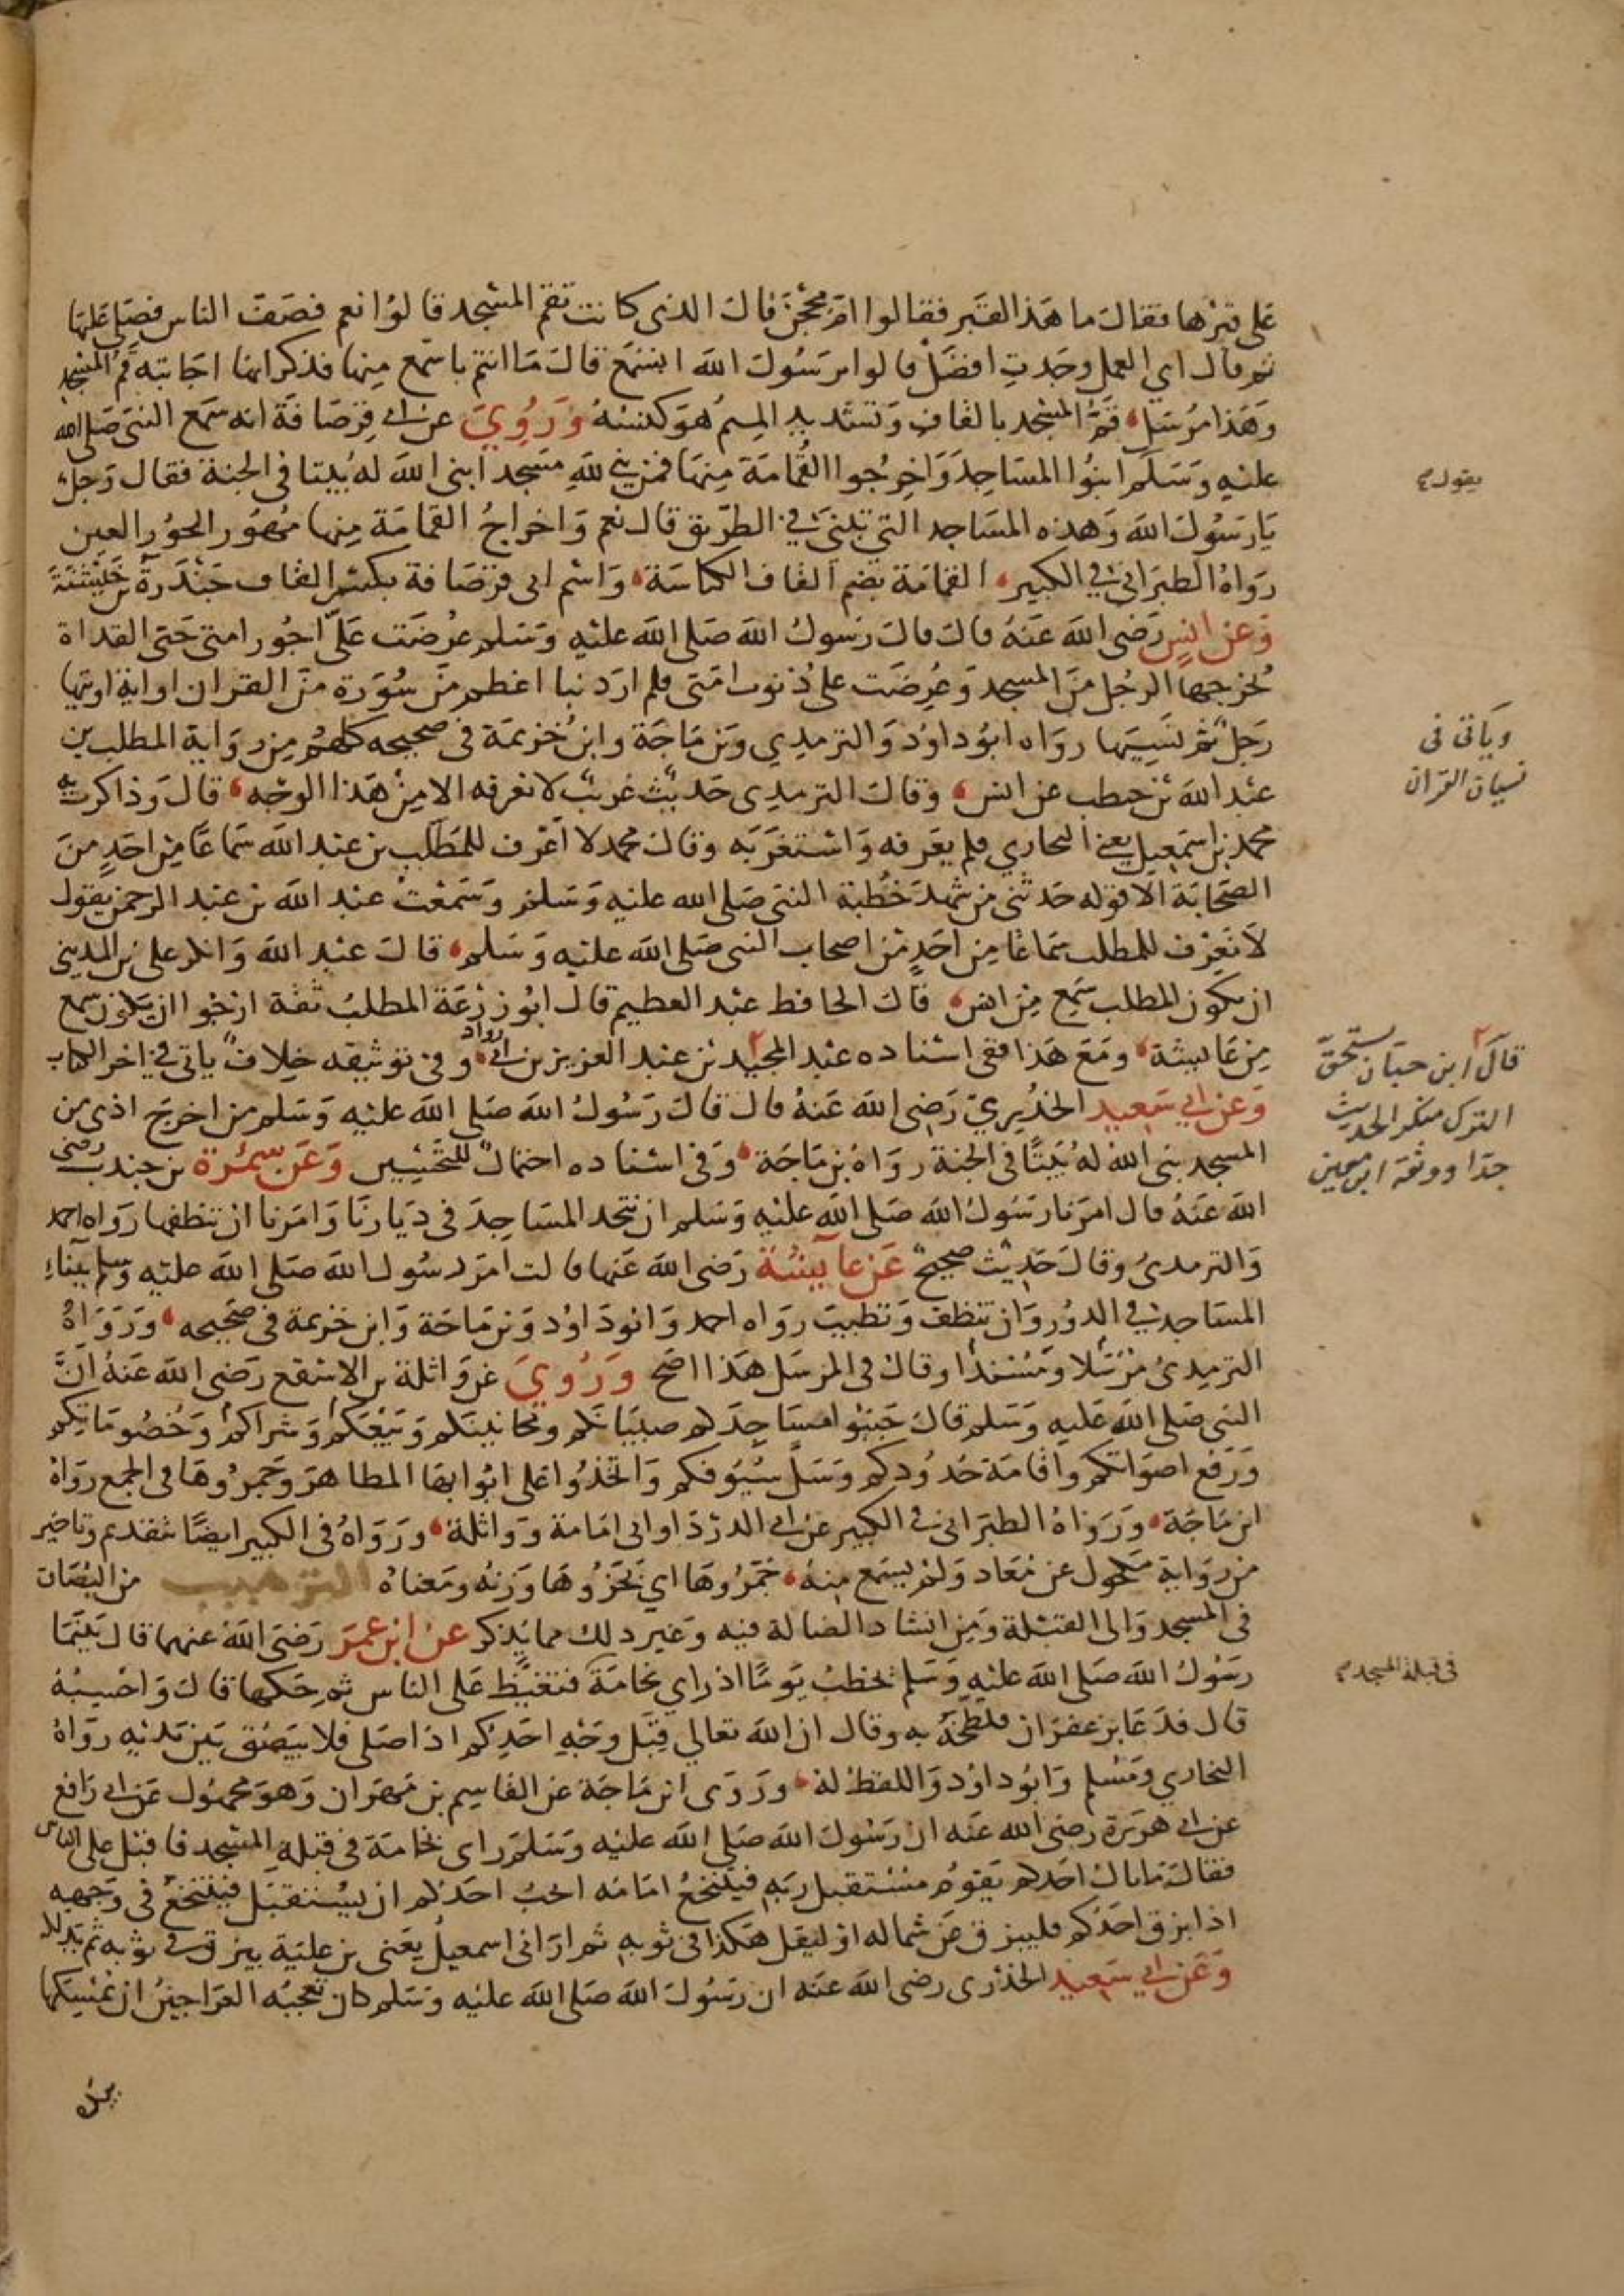 على قبرها فقال ما هذا القبر فقالوا ام محجن قال الذي كانت تقم المسجد قالوا نعم فصف الناس فصلى عليها
ثم قال اي العمل وجدتِ افضل قالوا يرسول الله اتسمع قال ما انتم باسمع منها فذكر انها اجابته قم المسجد
وهذا مرسل قم المسجد بالقاف وتشديد الميم هو كنسه وروي عن ابي قرصافة انه سمع النبي صلى الله
عليه وسلم ابنوا المساجد واخرجوا القمامة منها فمن بنى لله مسجدا بنى الله له بيتا في الجنة فقال رجل
يارسول الله وهذه المساجد التي تبنى في الطريق قال نعم واخراج القمامة منها مهور الحور العين
رواه الطبراني في الكبير القمامة بضم القاف الكناسة واسم ابي قرصافة بكسر القاف جندرة بن خيشنة
وعن انس رضي الله عنه قال قال رسول الله صلى الله عليه وسلم عرضت على اجور امتي حتى القذاة
يخرجها الرجل من المسجد وعرضت على ذنوب امتي فلم ار ذنبا اعظم من سورة من القران او اية اوتيها
رجل ثم نسيها رواه ابو داود والترمذي وبن ماجة وابن خزيمة في صحيحه كلهم من رواية المطلب بن
عبد الله بن حنطب عن انس وقال الترمذي حديث غريب لا نعرفه الا من هذا الوجه قال وذاكرت به
محمد بن اسمعيل يعني البخاري فلم يعرفه واستغربه وقال محمد لا اعرف للمطلب بن عبد الله سماعا من احد من
الصحابة الا قوله حدثني من شهد خطبة النبي صلى الله عليه وسلم وسمعت عبد الله بن عبد الرحمن يقول
لا نعرف للمطلب سماعا من احد من اصحاب النبي صلى الله عليه وسلم قال عبد الله وانكر علي بن المديني
ان يكون المطلب سمع من انس قال الحافظ عبد العظيم قال ابو زرعة المطلب ثقة ارجوا ان يكون سمع
من عايشة ومع هذا ففي اسناده عبد المجيد بن عبد العزيز بن ابي رواد وفي توثيقه خلاف ياتي في اخر الكتاب
وعن ابي سعيد الخدري رضي الله عنه قال قال رسول الله صلى الله عليه وسلم من اخرج اذى من
المسجد بنى الله له بيتا في الجنة رواه بن ماجة وفي اسناده احتمال للتحسين وعن سمرة بن جندب رضي
الله عنه قال امرنا رسول الله صلى الله عليه وسلم ان نتخذ المساجد في ديارنا وامرنا ان ننظفها رواه احمد
والترمذي وقال حديث صحيح عن عايشة رضي الله عنها قالت امر رسول الله صلى الله عليه وسلم ببناء
المساجد في الدور وان تنظف وتطيب رواه احمد وابو داود وبن ماجة وابن خزيمة في صحيحه ورواه
الترمذي مرسلا ومسندا وقال في المرسل هذا اصح وروي عن واثلة بن الاسقع رضي الله عنه ان
النبي صلى الله عليه وسلم قال جنبوا مساجدكم صبيانكم ومجانينكم وبيعكم وشراكم وخصوماتكم
ورفع اصواتكم واقامة حدودكم وسل سيوفكم واتخذوا على ابوابها المطاهر وجمروها في الجمع رواه
ابن ماجة ورواه الطبراني في الكبير عن ابي الدردا وابي امامة وواثلة ورواه في الكبير ايضا بتقديم وتاخير
من رواية مكحول عن معاذ ولم يسمع منه جمروها اي بخروها وزنه ومعناه الترهيب من البصاق
في المسجد والى القبلة ومن انشاد الضالة فيه وغير ذلك مما يذكر عن ابن عمر رضي الله عنهما قال بينما
رسول الله صلى الله عليه وسلم يخطب يوما اذ راي نخامة فتغيظ على الناس ثم حكها قال واحسبه
قال فدعا بزعفران فلطخه به وقال ان الله تعالى قبل وجه احدكم اذا صلى فلا يبصق بين يديه رواه
البخاري ومسلم وابو داود واللفظ له وروى ابن ماجة عن القاسم بن مهران وهو مجهول عن ابي رافع
عن ابي هريرة رضي الله عنه ان رسول الله صلى الله عليه وسلم راى نخامة في قبلة المسجد فاقبل على الناس
فقال ما بال احدكم يقوم مستقبل ربه فيتنخع امامه ايحب احدكم ان يستقبل فيتنخع في وجهه
اذا بزق احدكم فليبزق عن شماله او ليقل هكذا في ثوبه ثم اراني اسمعيل يعني بن علية يبزق في ثوبه ثم يدلكه
وعن ابي سعيد الخدري رضي الله عنه ان رسول الله صلى الله عليه وسلم كان تعجبه العراجين ان يمسكها
يقول
وياتي في
نسيان القران
قال ابن حبان يستحق
الترك منكر الحديث
جدا ووثقه ابن معين
في قبلة المسجد